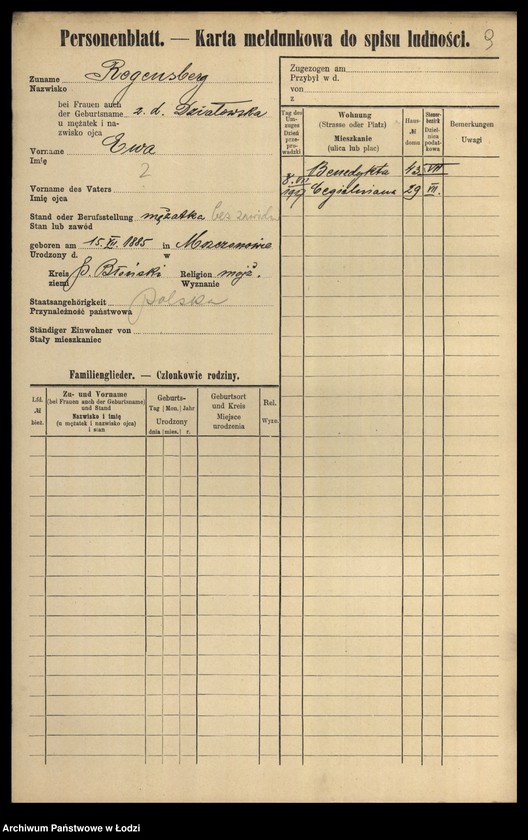 Personenblatt. — Karta meldunkowa do spisu ludności.
9
Zuname Regensberg
Nazwisko
bei Frauen auch
der Geburtsname z. d. Działowska
u mężatek i na-
zwisko ojca
Vorname Ewa
Imię
2
Vorname des Vaters
Imię ojca
Stand oder Berufsstellung mężatka bez zawodu
Stan lub zawód
geboren am 15. XI. 1885 in
Urodzony d. w
Kreis p. Błoński Religion mojż.
ziemi Wyznanie
Staatsangehörigkeit polska
Przynależność państwowa
Ständiger Einwohner von
Stały mieszkaniec
Familienglieder. — Członkowie rodziny.
Lfd. № bież.
Zu- und Vorname
(bei Frauen auch der Geburtsname)
und Stand
Nazwisko i imię
(u mężatek i nazwisko ojca)
i stan
Geburts-
Tag | Mon. | Jahr
Urodzony
dnia | mies. | r.
Geburtsort
und Kreis
Miejsce
urodzenia
Rel.
Wyzn.
Zugezogen am
Przybył w d.
von
z
Tag des Um-
zuges
Dzień
prze-
prowadzki
Wohnung
(Strasse oder Platz)
Mieszkanie
(ulica lub plac)
Haus-
№
domu
Steuer-
bezirk
Dziel-
nica
podat-
kowa
Bemerkungen
Uwagi
Benedykta 43 VII
8. VII
1919 Cegielniana 29 VII.
Archiwum Państwowe w Łodzi